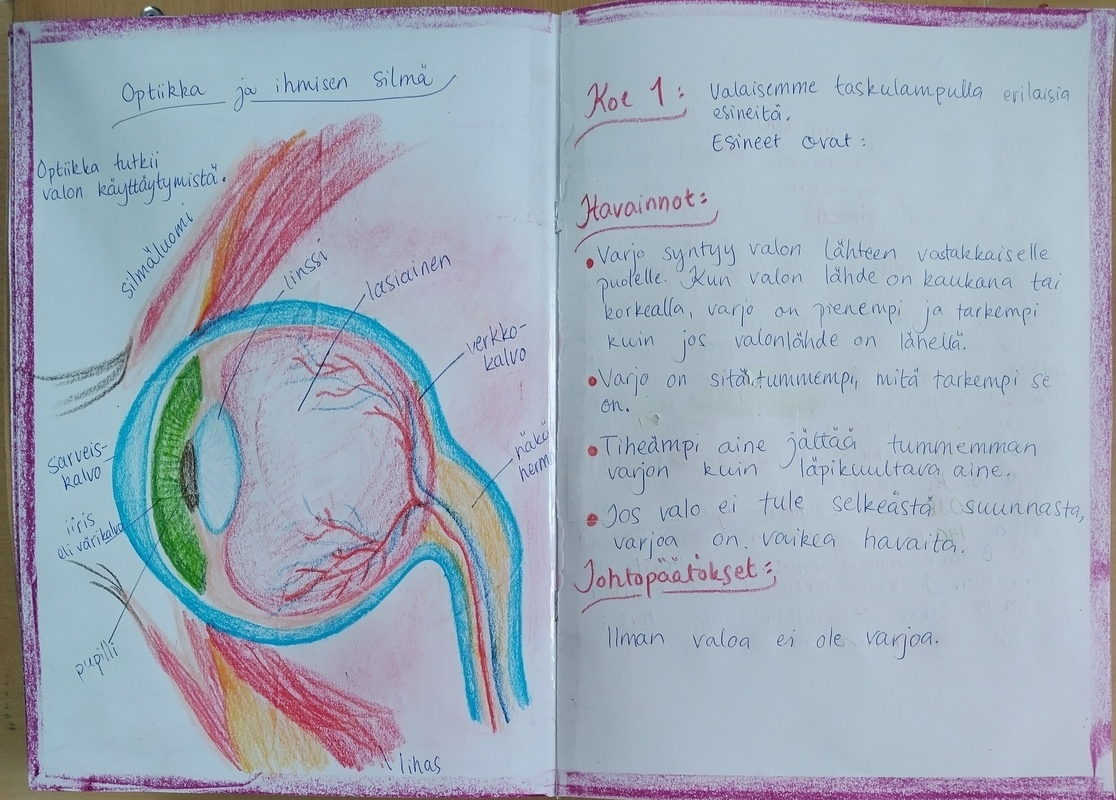 Optiikka ja ihmisen silmä
Optiikka tutkii
valon käyttäytymistä.
silmäluomi
linssi
lasiainen
verkko-
kalvo
näkö
hermo
sarveis-
kalvo
iiris
eli värikalvo
pupilli
lihas
Koe 1: Valaisemme taskulampulla erilaisia
esineitä.
Esineet ovat:
Havainnot:
• Varjo syntyy valon lähteen vastakkaiselle
puolelle. Kun valon lähde on kaukana tai
korkealla, varjo on pienempi ja tarkempi
kuin jos valonlähde on lähellä.
• Varjo on sitä tummempi, mitä tarkempi se
on.
• Tiheämpi aine jättää tummemman
varjon kuin läpikuultava aine.
• Jos valo ei tule selkeästä suunnasta,
varjoa on vaikea havaita.
Johtopäätökset:
Ilman valoa ei ole varjoa.